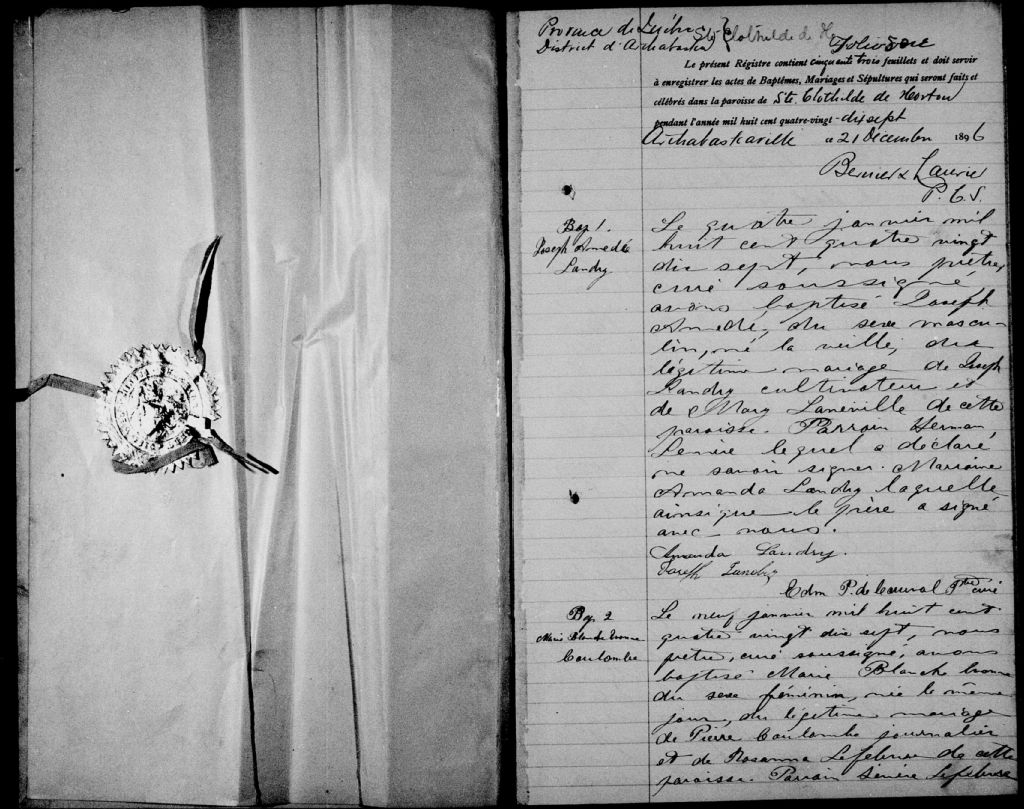 Province de Québec
District d'Arthabaska
Ste Clothilde de
Folio
Le présent Régistre contient cinquante trois feuillets et doit servir
à enregistrer les actes de Baptêmes, Mariages et Sépultures qui seront faits et
célébrés dans la paroisse de Ste. Clothilde de Horton
pendant l'année mil huit cent quatre-vingt-dix sept
Arthabaskaville ce 21 Décembre 1896
P. C. S.
Bap 1.
Joseph Amedé
Landry
Le quatre janvier mil
huit cent quatre vingt
dix sept, nous prêtre,
curé soussigné
avons baptisé Joseph
Amedé, du sexe mascu-
lin, né la veille, du
légitime mariage de Joseph
Landry cultivateur et
de Mary Laneville de cette
paroisse. Parrain Herman
lequel a déclaré
ne savoir signer. Marraine
Amanda Landry laquelle
ainsi que le père a signé
avec nous.
Amanda Landry.
Joseph Landry
Edm P. de Courval Ptre curé
Bap. 2
Marie Blanche Ivonne
Coulombe
Le neuf janvier mil huit cent
quatre vingt dix sept, nous
prêtre, curé soussigné, avons
baptisé Marie Blanche Ivonne
du sexe féminin, née le même
jour, du légitime mariage
de Pierre Coulombe journalier
et de Rosanna Lefebvre de cette
paroisse. Parrain Sévère Lefebvre